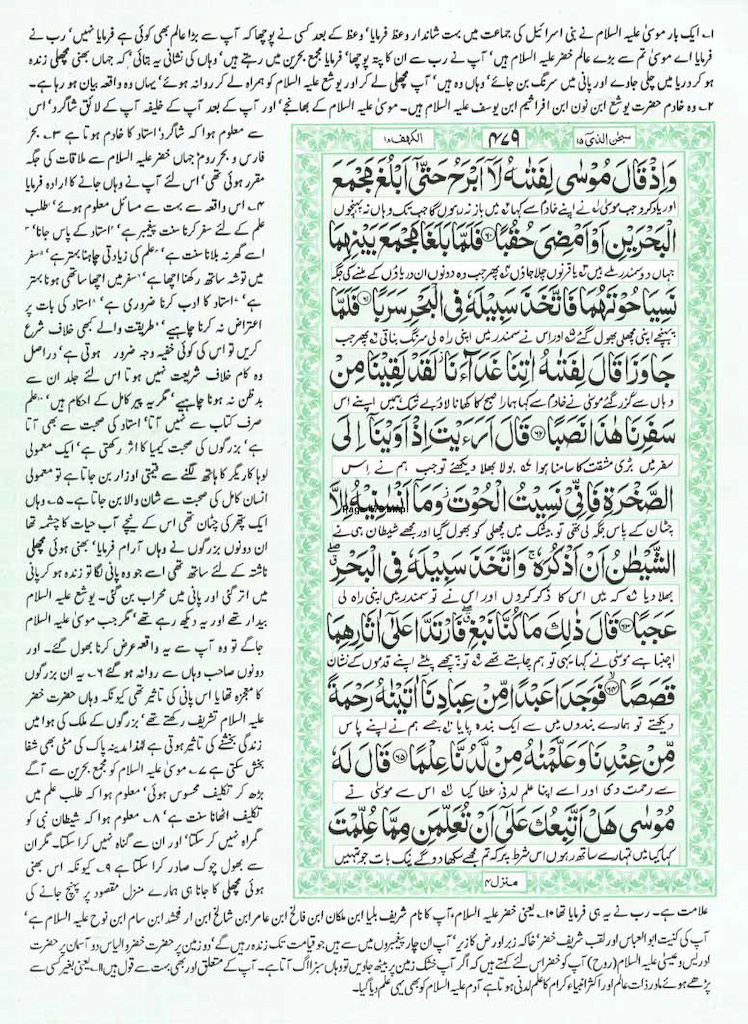 ۱۔ ایک بار موسیٰ علیہ السلام نے بنی اسرائیل کی جماعت میں بہت شاندار وعظ فرمایا‘ وعظ کے بعد کسی نے پوچھا کہ آپ سے بڑا عالم بھی کوئی ہے فرمایا نہیں‘ رب نے
فرمایا اے موسیٰ تم سے بڑے عالم خضر علیہ السلام ہیں‘ آپ نے رب سے ان کا پتہ پوچھا‘ فرمایا مجمع بحرین میں رہتے ہیں‘ وہاں کی نشانی یہ بتائی‘ کہ جہاں بھنی مچھلی زندہ
ہو کر دریا میں چلی جاوے اور پانی میں سرنگ بن جائے‘ وہاں وہ ہیں‘ آپ مچھلی لے کر اور یوشع علیہ السلام کو ہمراہ لے کر روانہ ہوئے‘ یہاں وہ واقعہ بیان ہو رہا ہے۔
۲۔ وہ خادم حضرت یوشع ابن نون ابن افراثیم ابن یوسف علیہ السلام ہیں۔ موسیٰ علیہ السلام کے بھانجے‘ اور آپ کے بعد آپ کے خلیفہ آپ کے لائق شاگرد‘ اس
سے معلوم ہوا کہ شاگرد‘ استاد کا خادم ہوتا ہے ۳۔ بحر
فارس و بحر روم‘ جہاں خضر علیہ السلام سے ملاقات کی جگہ
مقرر ہوئی تھی‘ اس لئے آپ نے وہاں جانے کا ارادہ فرمایا
۴۔ اس واقعہ سے بہت سے مسائل معلوم ہوئے‘ طلب
علم کے لئے سفر کرنا سنت پیغمبر ہے‘ استاد کے پاس جانا‘
اسے گھر نہ بلانا سنت ہے‘ علم کی زیادتی چاہنا بہتر ہے‘ سفر
میں توشہ ساتھ رکھنا اچھا ہے‘ سفر میں اچھا ساتھی ہونا بہتر
ہے‘ استاد کا ادب کرنا ضروری ہے‘ استاد کی بات پر
اعتراض نہ کرنا چاہیے‘ طریقت والے کبھی خلاف شرع
کریں تو اس کی کوئی خفیہ وجہ ضرور ہوتی ہے‘ دراصل
وہ کام خلاف شریعت نہیں ہوتا اس لئے جلد ان سے
بدظن نہ ہونا چاہیے‘ مگر یہ پیر کامل کے احکام ہیں‘ علم
صرف کتاب سے نہیں آتا‘ استاد کی صحبت سے بھی آتا
ہے‘ بزرگوں کی صحبت کیمیا کا اثر رکھتی ہے‘ ایک معمولی
لوہا کاریگر کا ہاتھ لگنے سے قیمتی اوزار بن جاتا ہے تو معمولی
انسان کامل کی صحبت سے شان والا بن جاتا ہے۔ ۵۔ وہاں
ایک پتھر کی چٹان تھی اس کے نیچے آب حیات کا چشمہ تھا
ان دونوں بزرگوں نے وہاں آرام فرمایا‘ بھنی ہوئی مچھلی
ناشتہ کے لئے ساتھ تھی اسے جو وہ پانی لگا تو زندہ ہو کر پانی
میں اتر گئی اور پانی میں محراب بن گئی۔ یوشع علیہ السلام
بیدار تھے اور یہ دیکھ رہے تھے‘ مگر جب موسیٰ علیہ السلام
جاگے تو وہ آپ سے یہ واقعہ عرض کرنا بھول گئے۔ اور
دونوں صاحب وہاں سے روانہ ہو گئے ۶۔ یہ ان بزرگوں
کا معجزہ تھا یا اس پانی کی تاثیر تھی کیونکہ وہاں حضرت خضر
علیہ السلام تشریف رکھتے تھے‘ بزرگوں کے ملک کی ہوا میں
زندگی بخشنے کی تاثیر ہوتی ہے لہٰذا مدینہ پاک کی مٹی بھی شفا
بخش سکتی ہے ۷۔ موسیٰ علیہ السلام کو مجمع بحرین سے آگے
بڑھ کر تکلیف محسوس ہوئی‘ معلوم ہوا کہ طلب علم میں
تکلیف اٹھانا سنت ہے‘ ۸۔ معلوم ہوا کہ شیطان نبی کو
گمراہ نہیں کر سکتا‘ اور ان سے گناہ نہیں کرا سکتا۔ مگر ان
سے بھول چوک صادر کرا سکتا ہے ۹۔ کیونکہ اس بھنی
ہوئی مچھلی کا جانا ہی ہمارے منزل مقصود پر پہنچ جانے کی
سبحٰن الذی ۱۵
۴۷۹
الکہف ۱۸
وَاِذْ قَالَ مُوْسٰى لِفَتٰىهُ لَاۤ اَبْرَحُ حَتّٰۤى اَبْلُغَ مَجْمَعَ
اور یاد کرو جب موسیٰ نے اپنے خادم سے کہا میں باز نہ رہوں گا جب تک وہاں نہ پہنچوں
الْبَحْرَيْنِ اَوْ اَمْضِىَ حُقُبًا ۶۰ فَلَمَّا بَلَغَا مَجْمَعَ بَيْنِهِمَا
جہاں دو سمندر ملے ہیں یا قرنوں چلا جاؤں پھر جب وہ دونوں ان دریاؤں کے ملنے کی جگہ
نَسِيَا حُوْتَهُمَا فَاتَّخَذَ سَبِيْلَهٗ فِى الْبَحْرِ سَرَبًا ۶۱ فَلَمَّا
پہنچے اپنی مچھلی بھول گئے اور اس نے سمندر میں اپنی راہ لی سرنگ بناتی پھر جب
جَاوَزَا قَالَ لِفَتٰىهُ اٰتِنَا غَدَآءَنَا لَقَدْ لَقِيْنَا مِنْ
وہاں سے گزر گئے موسیٰ نے خادم سے کہا ہمارا صبح کا کھانا لاؤ بے شک ہمیں اپنے اس
سَفَرِنَا هٰذَا نَصَبًا ۶۲ قَالَ اَرَءَيْتَ اِذْ اَوَيْنَاۤ اِلَى
سفر میں بڑی مشقت کا سامنا ہوا بولا بھلا دیکھئے تو جب ہم نے اس
الصَّخْرَةِ فَاِنِّىْ نَسِيْتُ الْحُوْتَ وَمَاۤ اَنْسٰنِيْهُ اِلَّا
چٹان کے پاس جگہ لی تھی تو بیشک میں مچھلی کو بھول گیا اور مجھے شیطان ہی نے
الشَّيْطٰنُ اَنْ اَذْكُرَهٗ وَاتَّخَذَ سَبِيْلَهٗ فِى الْبَحْرِ
بھلا دیا کہ میں اس کا ذکر کروں اور اس نے تو سمندر میں اپنی راہ لی
عَجَبًا ۶۳ قَالَ ذٰلِكَ مَا كُنَّا نَبْغِ فَارْتَدَّا عَلٰۤى اٰثَارِهِمَا
اچنبا ہے موسیٰ نے کہا یہی تو ہم چاہتے تھے تو پیچھے پلٹے اپنے قدموں کے نشان
قَصَصًا ۶۴ فَوَجَدَا عَبْدًا مِّنْ عِبَادِنَاۤ اٰتَيْنٰهُ رَحْمَةً
دیکھتے تو ہمارے بندوں میں سے ایک بندہ پایا جسے ہم نے اپنے پاس
مِّنْ عِنْدِنَا وَعَلَّمْنٰهُ مِنْ لَّدُنَّا عِلْمًا ۶۵ قَالَ لَهٗ
سے رحمت دی اور اسے اپنا علم لدنی عطا کیا اس سے موسیٰ نے
مُوْسٰى هَلْ اَتَّبِعُكَ عَلٰۤى اَنْ تُعَلِّمَنِ مِمَّا عُلِّمْتَ
کہا کیا میں تمہارے ساتھ رہوں اس شرط پر کہ تم مجھے سکھا دو گے نیک بات جو تمہیں
منزل ۴
علامت ہے۔ رب نے یہ ہی فرمایا تھا ۱۰۔ یعنی خضر علیہ السلام‘ آپ کا نام شریف بلیا ابن ملکان ابن فالخ ابن عامر ابن شالخ ابن ار فخشد ابن سام ابن نوح علیہ السلام ہے‘
آپ کی کنیت ابو العباس اور لقب شریف خضر‘ خاکہ زبر اور ض کا زیر‘ آپ ان چار پیغمبروں میں سے ہیں جو قیامت تک زندہ رہیں گے‘ دو زمین پر حضرت خضر و الیاس دو آسمان پر حضرت
ادریس و عیسیٰ علیہ السلام (روح) آپ کو خضر اس لئے کہتے ہیں کہ اگر آپ خشک زمین پر بیٹھ جاویں تو وہاں سبزہ اگ آتا ہے۔ آپ کے متعلق اور بھی بہت سے قول ہیں ۱۱۔ یعنی بغیر کسی سے
پڑھے ہوئے مادر ذات عالم اور اکثر انبیاء کرام کا علم لدنی ہوتا ہے آدم علیہ السلام کو بھی یہی علم دیا گیا۔